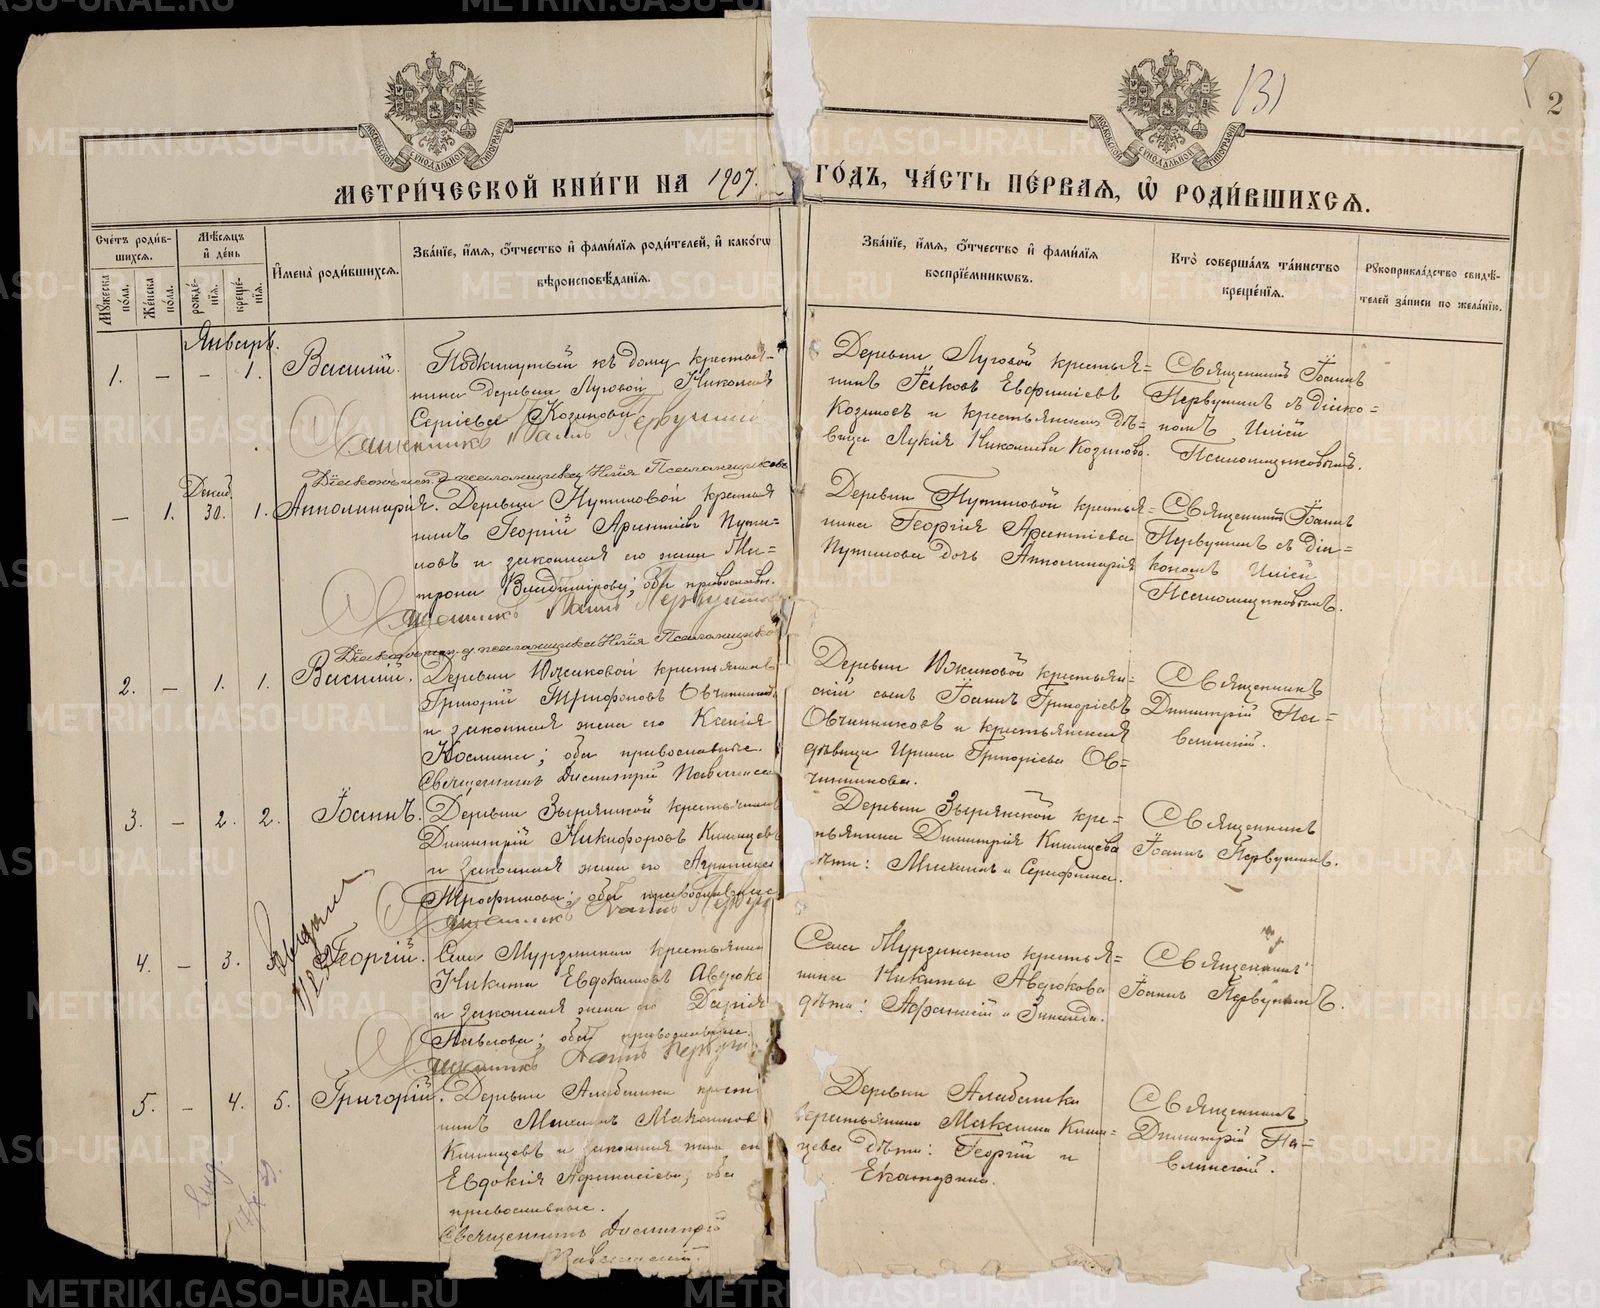 МЕТРИ́ЧЕСКОЙ КНИ́ГИ НА 1907.
ГО́ДЪ, ЧА́СТЬ ПЕ́РВАЯ, Ѽ РОДИ́ВШИХСЯ.
(3)
2
Сче́тъ роди́в-
шихся.
Мꙋ́жеска по́ла.
Же́нска по́ла.
Мѣ́сяцъ и҆ де́нь
рожде́-нїя.
креще́-нїя.
И҆мена̀ роди́вшихся.
Зва́нїе, и҆́мя, ѻ҆́тчество и҆ фами́лїя роди́телей, и҆ како́гѡ
вѣроисповѣ́данїя.
Зва́нїе, и҆́мя, ѻ҆́тчество и҆ фами́лїя
воспрїе́мникѡвъ.
Кто̀ соверша́лъ та́инство
креще́нїя.
Рꙋкоприкла́дство свидѣ́-
телей за́писи по жела́нїю.
Январь.
1. — — 1. Василій.
Подкинутый къ дому крестья-
нина деревни Луговой Николая
Сергіева Козинова
Священникъ Іоаннъ Первушинъ
Діаконъ исп. д. псаломщика Илія Псаломщиковъ
Деревни Луговой крестья=
нинъ Іаковъ Евфиміевъ
Козиновъ и крестьянская дѣ=
вица Лукія Николаева Козинова.
Священникъ Іоаннъ
Первушинъ съ діако=
номъ Иліей
Псаломщиковымъ.
Декаб.
— 1. 30. 1. Апполинарія.
Деревни Путиловой крестья
нинъ Георгій Арсентіевъ Пути=
ловъ и законная его жена Ма=
трона Владимірова; оба православн.
Священникъ Іоаннъ Первушинъ
Діаконъ исп. д. псаломщика Илія Псаломщиковъ
Деревни Путиловой крестья=
нина Георгія Арсентіева
Путилова дочь Апполинарія
Священникъ Іоаннъ
Первушинъ съ діа=
кономъ Иліей
Псаломщиковымъ.
2. — 1. 1. Василій.
Деревни Южаковой крестьянинъ
Григорій Трифоновъ Овчинников
и законная жена его Ксенія
Космина; оба православные.
Священникъ Димитрій Павлинск
Деревни Южаковой крестьян-
скій сынъ Іоаннъ Григоріевъ
Овчинниковъ и крестьянская
дѣвица Ирина Григоріева Ов=
чинникова.
Священникъ
Димитрій Па=
влинскій.
3. — 2. 2. Іоаннъ.
Деревни Зырянской крестьянинъ
Димитрій Никифоровъ Кишцевъ
и законная жена его Агриппина
Трофимова; оба православные
Священникъ Іоаннъ Первуш
Деревни Зырянской кре=
стьянина Димитрія Кишцева
дѣти: Михаилъ и Серафима.
Священникъ
Іоаннъ Первушинъ.
4. — 3. Георгій.
Села Мурзинскаго крестьянин
Никита Евдокимовъ Авдюко
и законная жена его Дарія
Павлова; оба православные.
Священникъ Іоаннъ Первуши
Села Мурзинскаго крестья=
нина Никиты Авдюкова
дѣти: Афанасій и Зинаида.
Священникъ
Іоаннъ Первушинъ.
5. — 4. 5. Григорій.
Деревни Алабашки крест
нинъ Максимъ
Кишцевъ и законная жена ег
Евдокія Афанасіева; оба
православные.
Священникъ Димитрій
Павлинскій.
Деревни Алабашки
крестьянина Максима Киш=
цева дѣти: Георгій и
Екатерина.
Священникъ
Димитрій Па=
влинскій.
METRIKI.GASO-URAL.RU